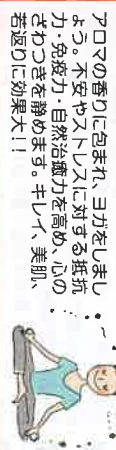 アロマの香りに包まれ、ヨガをしまし
ょう。不安やストレスに対する抵抗
力・免疫力・自然治癒力を高め、心の
ざわつきを静めます。キレイ、美肌、
若返りに効果大!!